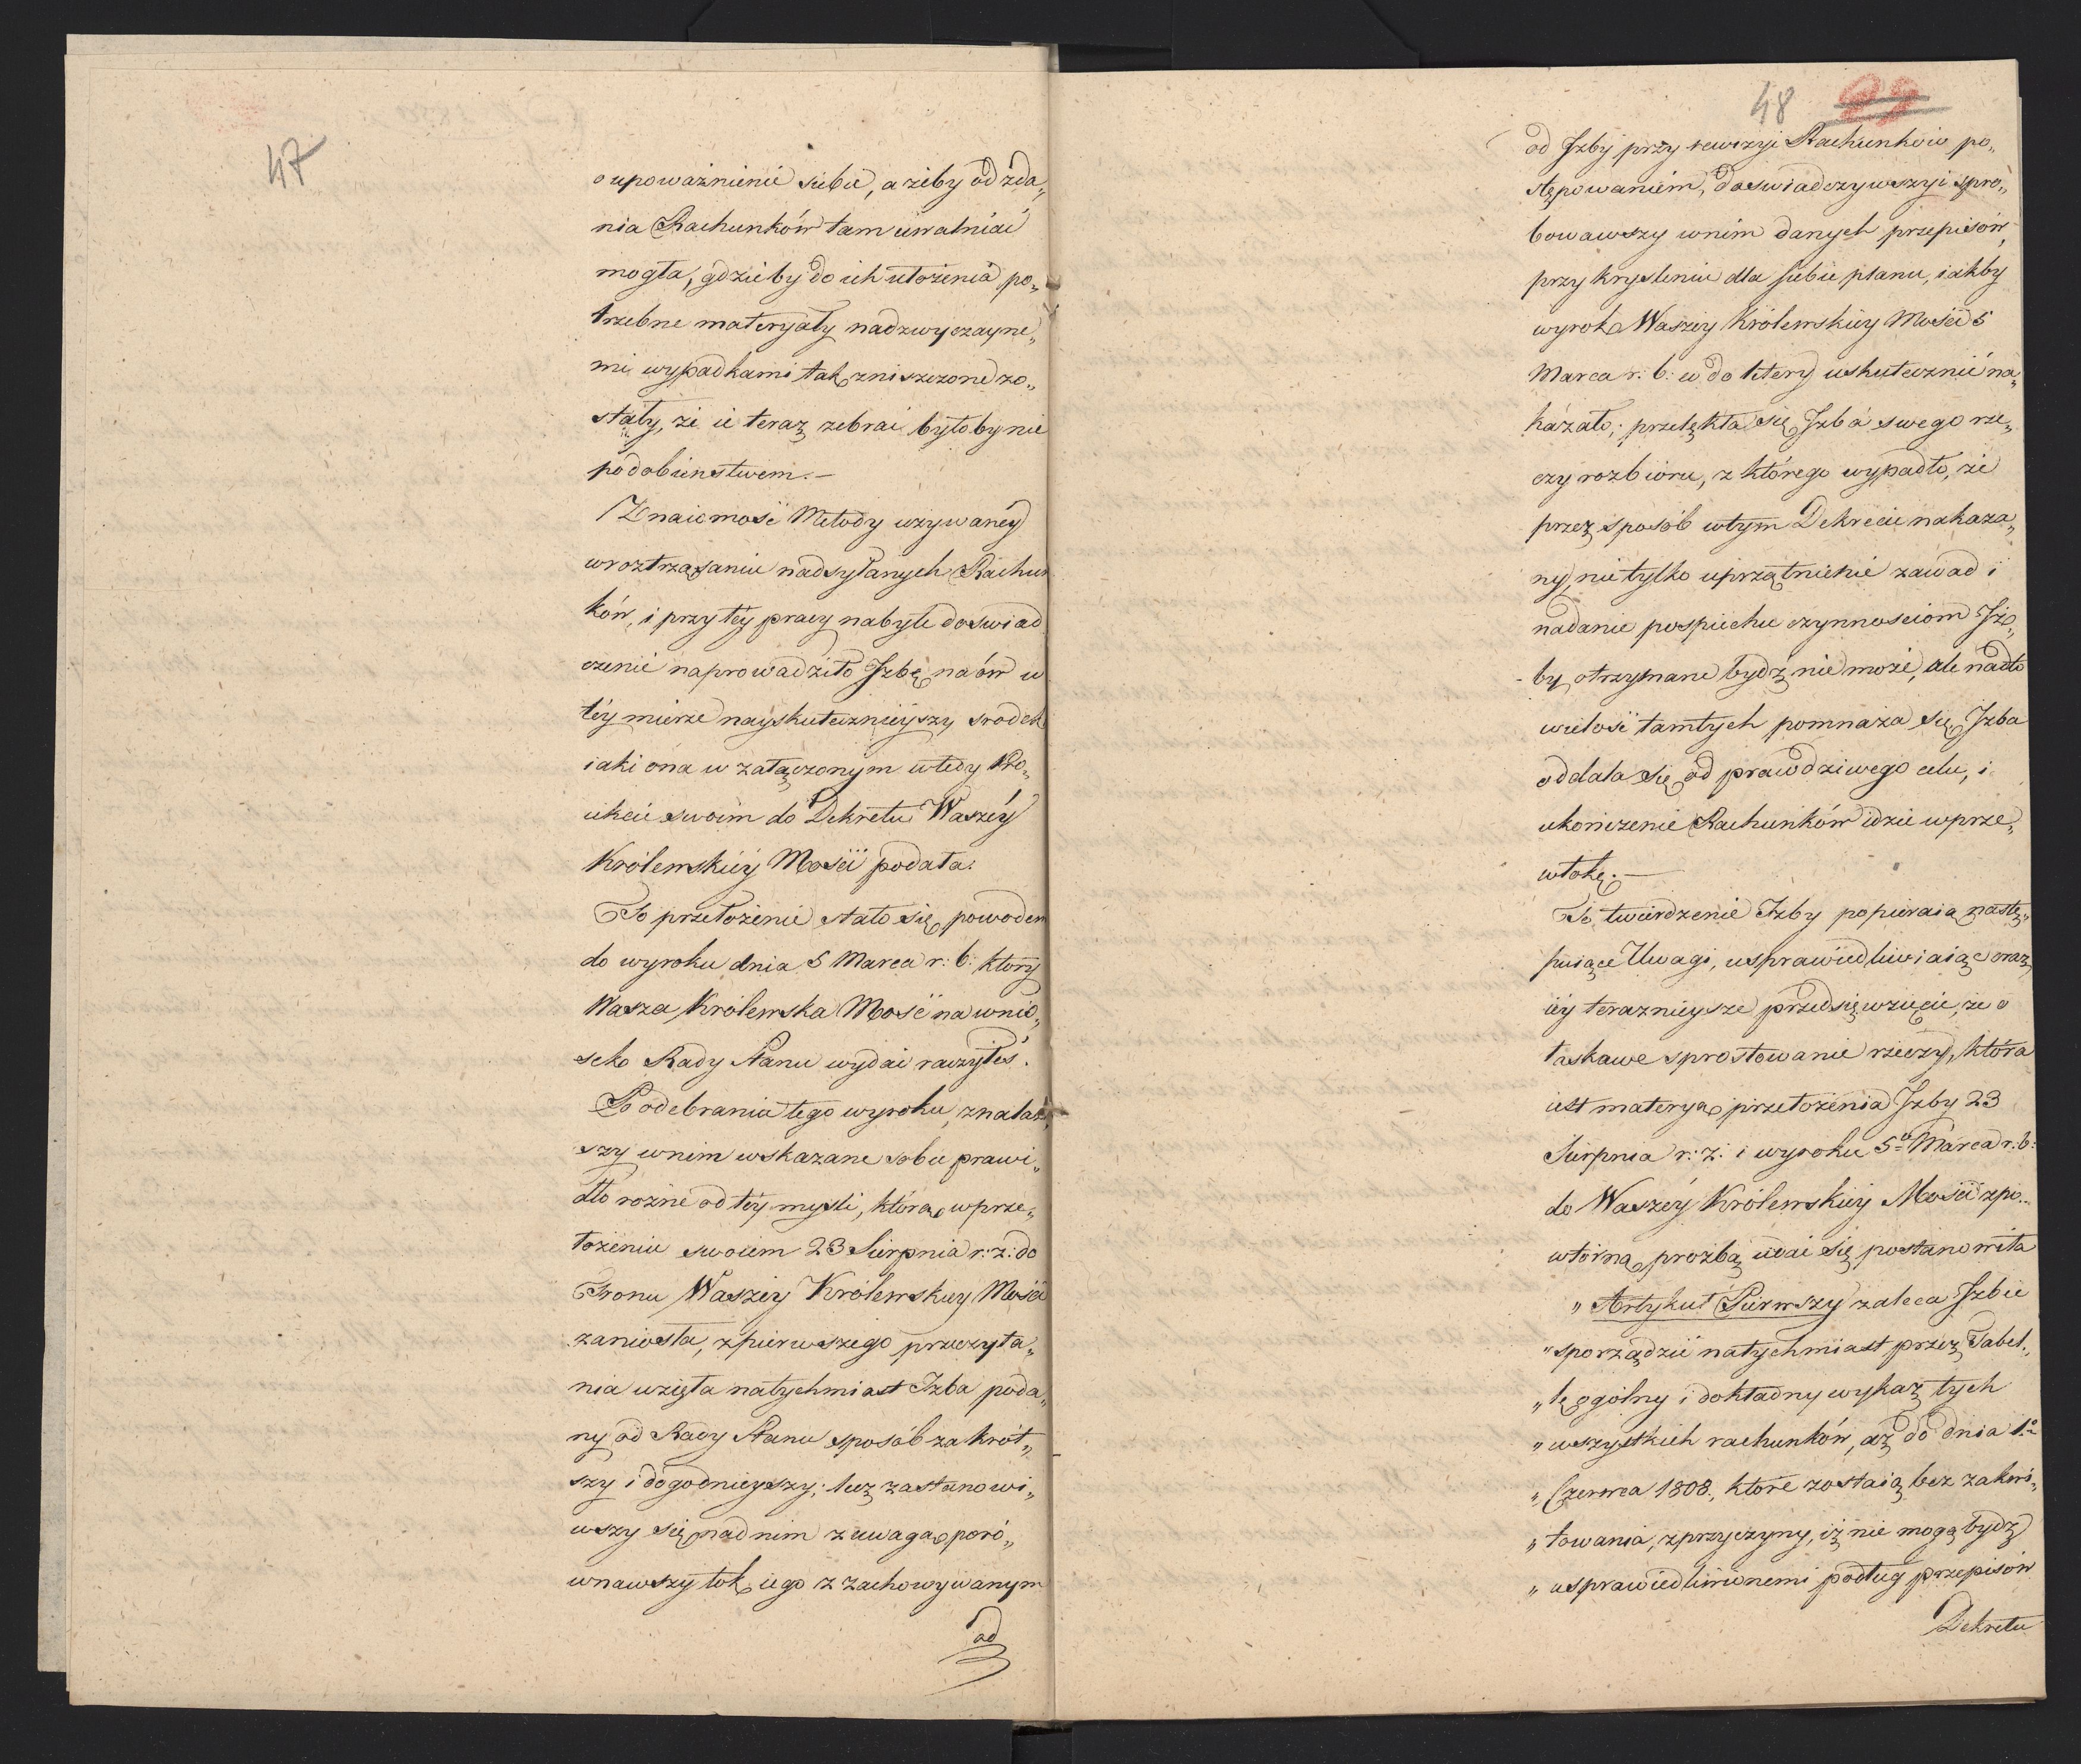 47
o upoważnienie siebie, a żeby od zda„
nia Rachunków tam uwalniać
mogła, gdzieby do ich ułożenia po„
trzebne materyały nadzwyczayne„
mi wypadkami tak zniszczone zo„
stały, że ie teraz zebrać byłoby nie
podobieństwem.—
Znaiomość Metody używaney
w roztrząsaniu nadsyłanych Rachun
ków, i przy tey pracy nabyte doswiad
czenie naprowadziło Jzbę na ów w
tey mierze nayskutecznieyszy srodek
iaki ona w załączonym wtedy Pro„
iekcie swoim do Dekretu Waszéy
Królewskiey Mości podała.
To przełożenie stało się powodem
do wyroku dnia 5 Marca r: b: który
Wasza Królewska Mość na wnio„
sek Rady Stanu wydać raczyłeś.
Po odebraniu tego wyroku, znalazł
szy w nim wskazane sobie prawi„
dło rożne od tey mysli, którą w prze„
łożeniu swoiem 23 Sierpnia r: z: do
Tronu Waszey Królewskiey Mości
zaniosła, z pierwszego przeczyta„
nia wzięła natychmiast Jzba poda„
ny od Rady Stanu sposób za krót„
szy i dogodnieyszy; lecz zastanowi„
wszy się nad nim z uwagą, poró„
wnawszy tok iego z zachowywanym
od
48
od Jzby przy rewizyi Rachunków po„
stępowaniem, doswiadczywszy i spró„
bowawszy w nim danych przepisów,
przy krysleniu dla siebie planu, iakby
wyrok Waszey Królewskiey Mości 5
Marca r: b: w do który uskutecznić na„
kazało; przelękła się Jzba swego rze„
czy rozbioru, z którego wypadło, że
przez sposób w tym Dekrecie nakaza„
ny, nie tylko uprzątnienie zawad i
nadanie pospiechu czynnosciom Jz„
by otrzymane bydź nie może, ale nadto
wielość tamtych pomnaża się, Jzba
oddala się od prawdziwego celu, i
ukończenie Rachunków idzie w prze„
włokę.—
To twierdzenie Jzby popieraią nastę„
puiące Uwagi, usprawiedliwiaiąc oraz
iéy teraznieysze przedsięwzięcie, że o
łaskawe sprostowanie rzeczy, która
iest materyą przełożenia Jzby 23
Sierpnia r: z: i wyroku 5º Marca r: b:
do Waszéy Królewskiey Mości z po„
wtórną prozbą udać się postanowiła
„ Artykuł Pierwszy zaleca Jzbie
„ sporządzić natychmiast przez Tabel„
„ lę ogólny i dokładny wykaz tych
„ wszystkich rachunków, aż do dnia 1º
„ Czerwca 1808., które zostaią bez zakwi„
„ towania, z przyczyny, iż nie mogą bydź
„ usprawiedliwionemi podług przepisów
Dekretu